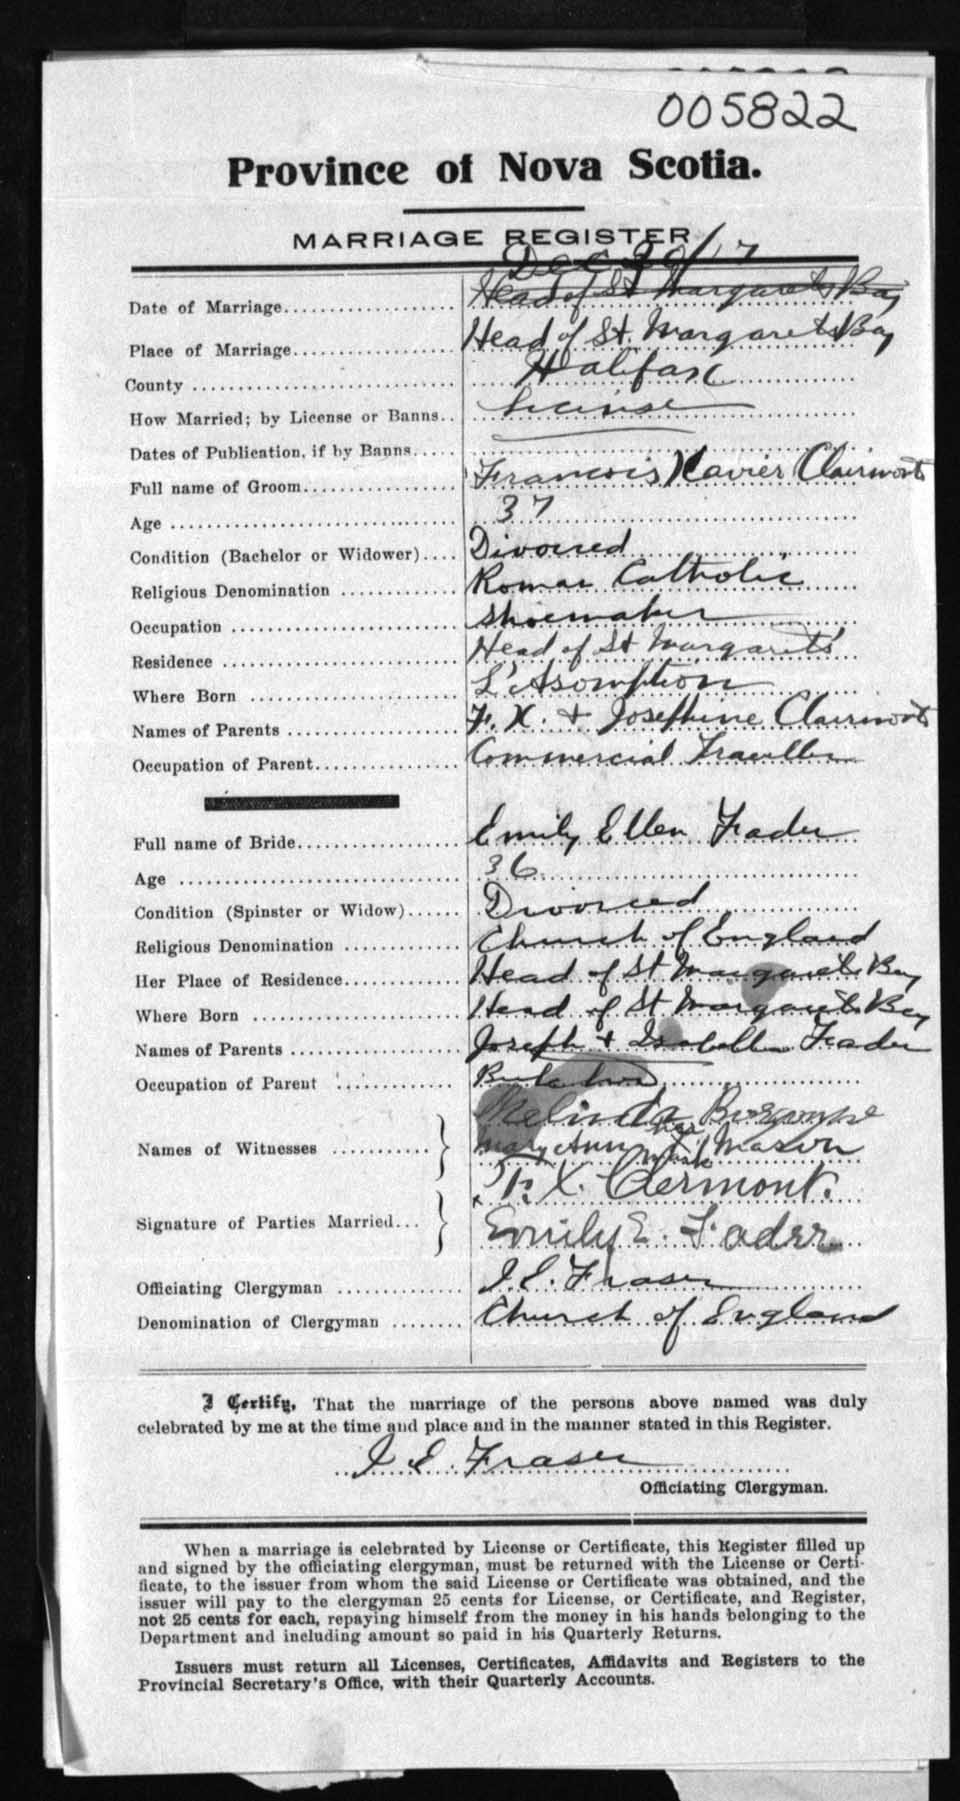 005822
Province of Nova Scotia.
MARRIAGE REGISTER
Dec 30/17
Date of Marriage Head of St Margarets Bay
Place of Marriage Head of St. Margarets Bay
County Halifax
How Married; by License or Banns License
Dates of Publication, if by Banns
Full name of Groom Francois Xavier Clairmont
Age 37
Condition (Bachelor or Widower) Divorced
Religious Denomination Roman Catholic
Occupation Shoemaker
Residence Head of St Margarets'
Where Born L'Asomption
Names of Parents F. X. + Josephine Clairmont
Occupation of Parent Commercial Traveller
Full name of Bride Emily Ellen Frader
Age 36
Condition (Spinster or Widow) Divorced
Religious Denomination Church of England
Her Place of Residence Head of St Margarets Bay
Where Born Head of St Margarets Bay
Names of Parents Joseph + Isabella Frader
Occupation of Parent
Melinda
Names of Witnesses Mary Ann her X mark Mason
F. X. Clermont.
Signature of Parties Married Emily E. Fader
Officiating Clergyman J. E. Fraser
Denomination of Clergyman Church of England
I Certify, That the marriage of the persons above named was duly
celebrated by me at the time and place and in the manner stated in this Register.
J. E. Fraser
Officiating Clergyman.
When a marriage is celebrated by License or Certificate, this Register filled up
and signed by the officiating clergyman, must be returned with the License or Certi-
ficate, to the issuer from whom the said License or Certificate was obtained, and the
issuer will pay to the clergyman 25 cents for License, or Certificate, and Register,
not 25 cents for each, repaying himself from the money in his hands belonging to the
Department and including amount so paid in his Quarterly Returns.
Issuers must return all Licenses, Certificates, Affidavits and Registers to the
Provincial Secretary's Office, with their Quarterly Accounts.